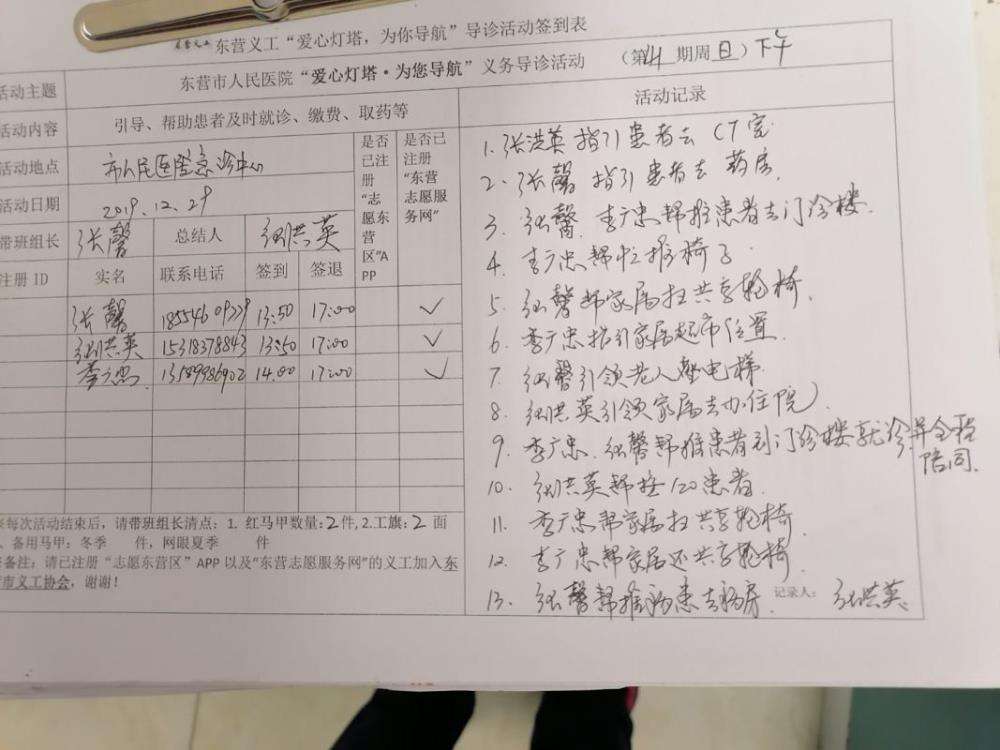 东营义工“爱心灯塔，为你导航”导诊活动签到表
活动主题 东营市人民医院“爱心灯塔·为您导航”义务导诊活动 （第 期周日）下午
活动内容 引导、帮助患者及时就诊、缴费、取药等
活动地点 市人民医院急诊中心
活动日期 2019.12.29
是否已注册“志愿东营区”APP
是否已注册“东营志愿服务网”
带班组长 张馨 总结人 张洪英
注册 ID 实名 联系电话 签到 签退
张馨 13:50 17:00 ✓
张洪英 15318378843 13:50 17:00 ✓
李广忠 13589986902 14:00 17:00 ✓
※每次活动结束后，请带班组长清点：1. 红马甲数量:2件,2.工旗:2 面
、备用马甲：冬季 件，网眼夏季 件
备注：请已注册“志愿东营区”APP 以及“东营志愿服务网”的义工加入东
营市义工协会，谢谢！
活动记录
1.张洪英指引患者去CT室
2.张馨指引患者去药房.
3.张馨.李广忠帮推患者去门诊楼.
4.李广忠帮忙推椅子
5.张馨帮家属扫共享轮椅.
6.李广忠指引家属超市位置
7.张馨引领老人坐电梯.
8.张洪英引领家属去办住院
9.李广忠.张馨帮推患者到门诊楼就诊并全程
陪同.
10.张洪英帮接120患者.
11.李广忠帮家属扫共享轮椅
12.李广忠帮家属还共享轮椅.
13.张馨帮推病患去病房.
记录人： 张洪英